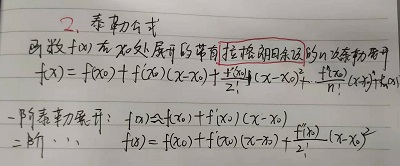 2. 泰勒公式
函数f(x)在x0处展开的带有拉格朗日余项的n次泰勒展开
f(x) = f(x0) + f'(x0)(x-x0) + f''(x0)/2! (x-x0)² + f^n(x0)/n! (x-x0)^n + Rn(x)
一阶泰勒展开: f(x)≈f(x0) + f'(x0)(x-x0)
二阶 ... f(x) = f(x0) + f'(x0)(x-x0) + f''(x0)/2! (x-x0)²